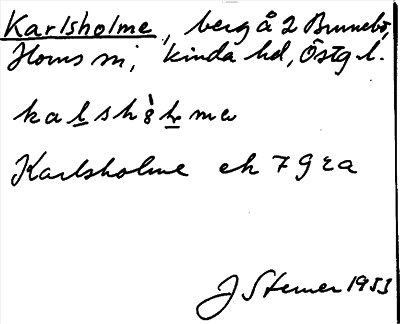 Karlsholme, berg å 2 Brunnebo,
Horns sn, Kinda hd, Östg l.
Karlsholme ek 7 9 ra
J Sterner 1953